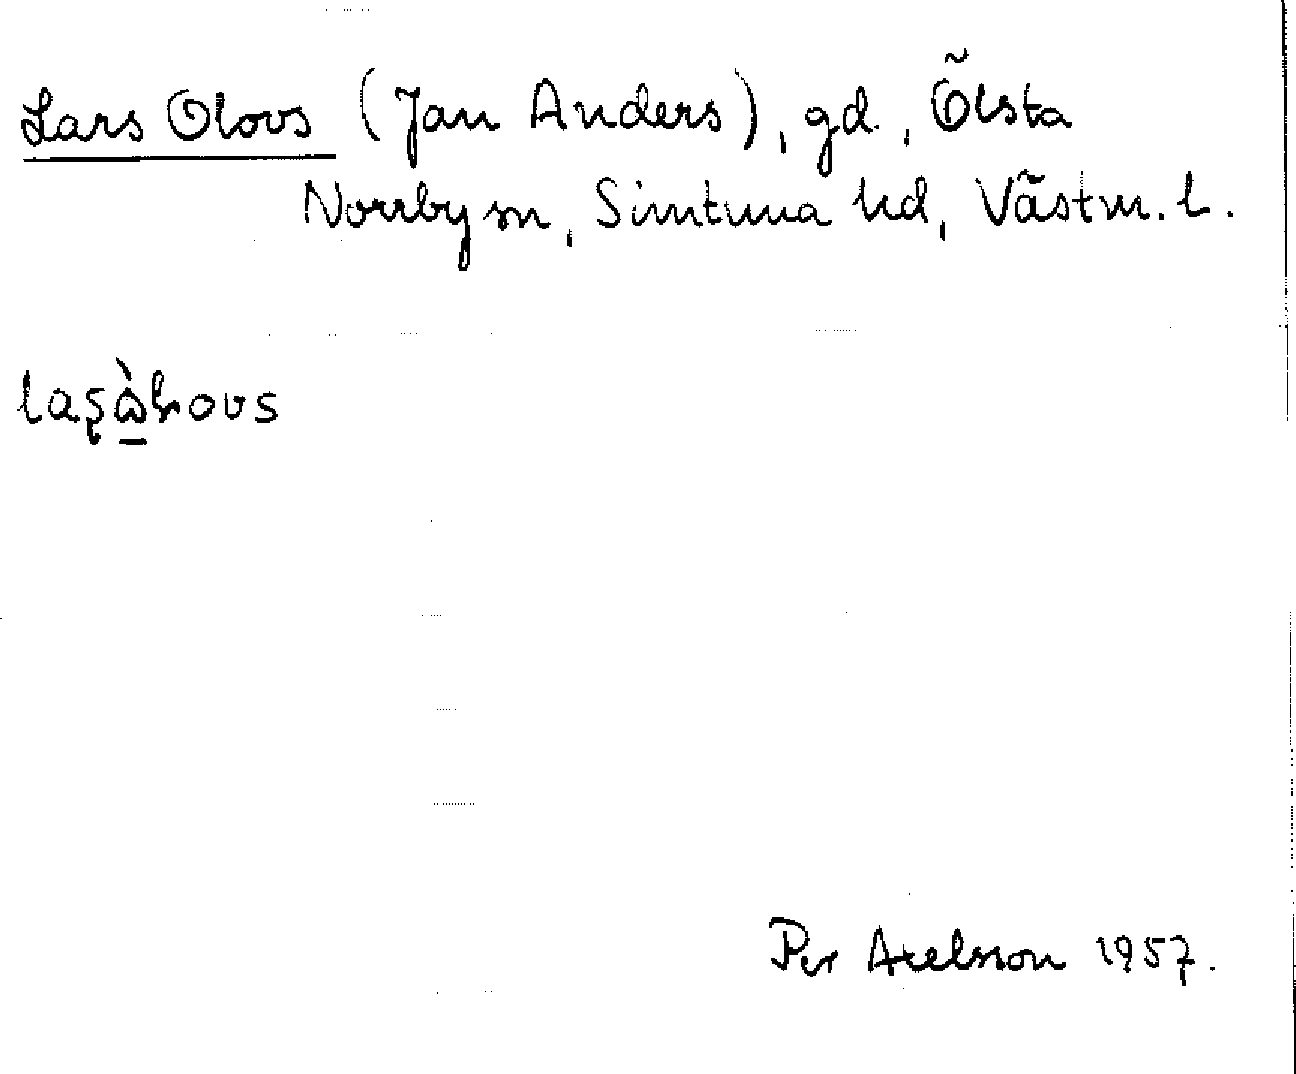 Lars Olovs (Jan Anders), gd, Ölsta
Norrby sn, Simtuna hd, Västm. l.
Per Axelsson 1957.